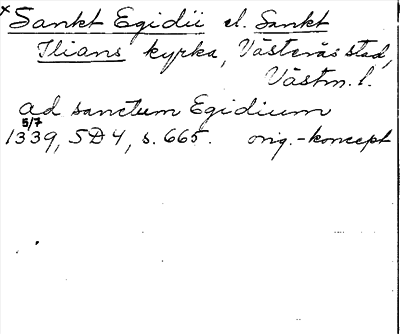 x Sankt Egidii el. Sankt
Ilians kyrka, Västerås stad,
Västm. l.
ad sanctum Egidium
5/7
1339, SD 4, s. 665. orig.-koncept